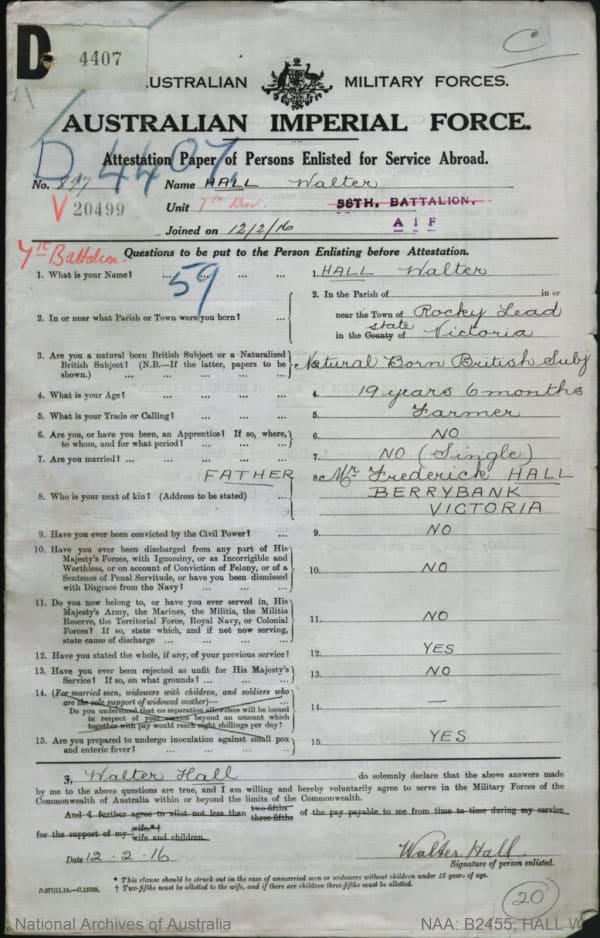 C
D 4407
AUSTRALIAN MILITARY FORCES.
AUSTRALIAN IMPERIAL FORCE.
D. 4407
Attestation Paper of Persons Enlisted for Service Abroad.
No. 897 Name HALL Walter
V 20499 Unit 7th Bn. 38TH. BATTALION.
Joined on 12/2/16 A I F
7th Battalion. Questions to be put to the Person Enlisting before Attestation.
59
1. What is your Name? ... ... ... ... 1. HALL Walter
2. In or near what Parish or Town were you born? ... 2. In the Parish of in or
near the Town of Rocky Lead
state
in the County of Victoria
3. Are you a natural born British Subject or a Naturalized
British Subject? (N.B.—If the latter, papers to be
shown.) ... ... ... ... ... Natural Born British Subj
4. What is your Age? ... ... ... ... 4. 19 years 6 months
5. What is your Trade or Calling? ... ... ... 5. Farmer
6. Are you, or have you been, an Apprentice? If so, where,
to whom, and for what period? ... ... ... 6. NO
7. Are you married? ... ... ... ... 7. NO (Single)
FATHER
8. Who is your next of kin? (Address to be stated) ... 8. Mr Frederick HALL
BERRYBANK
VICTORIA
9. Have you ever been convicted by the Civil Power? ... 9. NO
10. Have you ever been discharged from any part of His
Majesty's Forces, with Ignominy, or as Incorrigible and
Worthless, or on account of Conviction of Felony, or of a
Sentence of Penal Servitude, or have you been dismissed
with Disgrace from the Navy? ... ... ... 10. NO
11. Do you now belong to, or have you ever served in, His
Majesty's Army, the Marines, the Militia, the Militia
Reserve, the Territorial Force, Royal Navy, or Colonial
Forces? If so, state which, and if not now serving,
state cause of discharge ... ... ... 11. NO
12. Have you stated the whole, if any, of your previous service? 12. YES
13. Have you ever been rejected as unfit for His Majesty's
Service? If so, on what grounds? ... ... ... 13. NO
14. (For married men, widowers with children, and soldiers who
are the sole support of widowed mother)—
Do you understand that no separation allowance will be issued
in respect of your service beyond an amount which
together with pay would reach eight shillings per day? 14. —
15. Are you prepared to undergo inoculation against small pox
and enteric fever? ... ... ... ... 15. YES
I, Walter Hall do solemnly declare that the above answers made
by me to the above questions are true, and I am willing and hereby voluntarily agree to serve in the Military Forces of the
Commonwealth of Australia within or beyond the limits of the Commonwealth.
And I further agree to allot not less than two-fifths three-fifths of the pay payable to me from time to time during my service
for the support of my wife.*† wife and children.
Date 12.2.16 Walter Hall.
Signature of person enlisted.
* This clause should be struck out in the case of unmarried men or widowers without children under 18 years of age.
† Two-fifths must be allotted to the wife, and if there are children three-fifths must be allotted.
20
National Archives of Australia NAA: B2455, HALL W